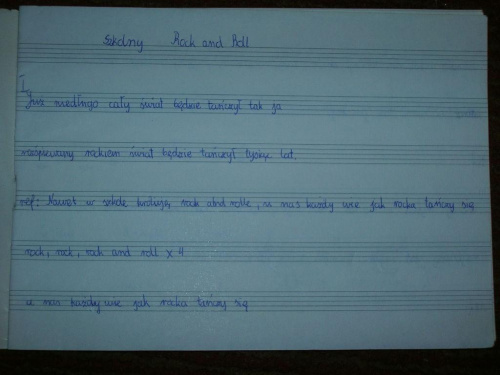 szkolny Rock and Roll
I.
Już niedługo cały świat będzie tańczył tak ja
rozśpiewany rockiem świat będzie tańczył tysiąc lat.
ref: Nawet w szkole króluje, rock and rolle, u nas każdy wie jak rocka tańczy się
rock, rock, rock and roll x 4
u nas każdy wie jak rocka tańczy się